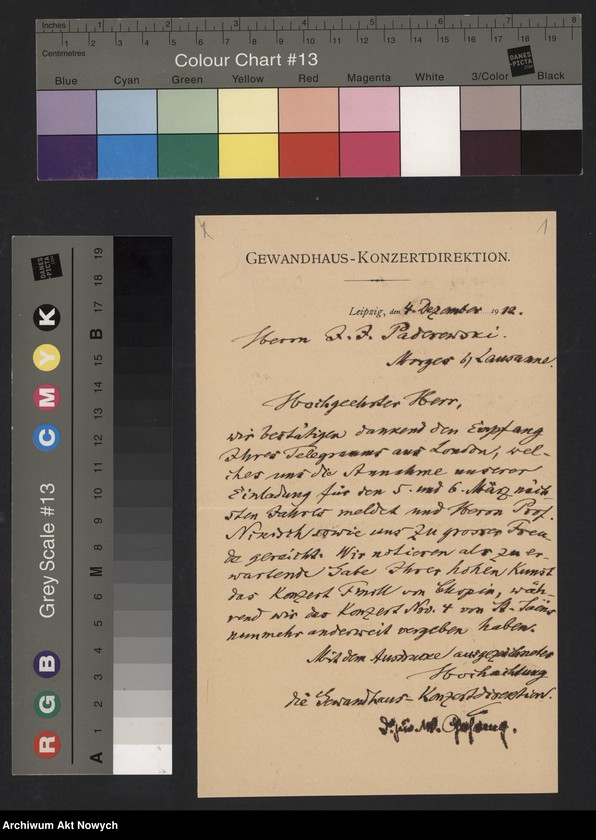 Inches 1 2 3 4 5 6 7 8
Centimetres 1 2 3 4 5 6 7 8 9 10 11 12 13 14 15 16 17 18 19
Colour Chart #13
DANES
-PICTA
Blue Cyan Green Yellow Red Magenta White 3/Color Black
GEWANDHAUS-KONZERTDIREKTION.
Leipzig, den 4. Dezember 1912.
Herrn I. J. Paderewski.
Morges b/ Lausanne.
Hochgeehrter Herr,
wir bestätigen dankend den Empfang
Ihres Telegramms aus London, wel-
ches uns die Annahme unserer
Einladung für den 5. und 6. März näch-
sten Jahres meldet und Herrn Prof.
Nikisch sowie uns zu grosser Freu-
de gereicht. Wir notieren als zu er-
wartende Gabe Ihrer hohen Kunst
das Konzert Fmoll von Chopin, wäh-
rend wir das Konzert Nro. 4 von St-Saëns
nunmehr anderweit vergeben haben.
Mit dem Ausdrucke ausgezeichneter
Hochachtung
die Gewandhaus-Konzertdirektion.
Dr. jur.
DANES
-PICTA
R G B Grey Scale #13 C M Y K
A 1 2 3 4 5 6 M 8 9 10 11 12 13 14 15 B 17 18 19
Archiwum Akt Nowych